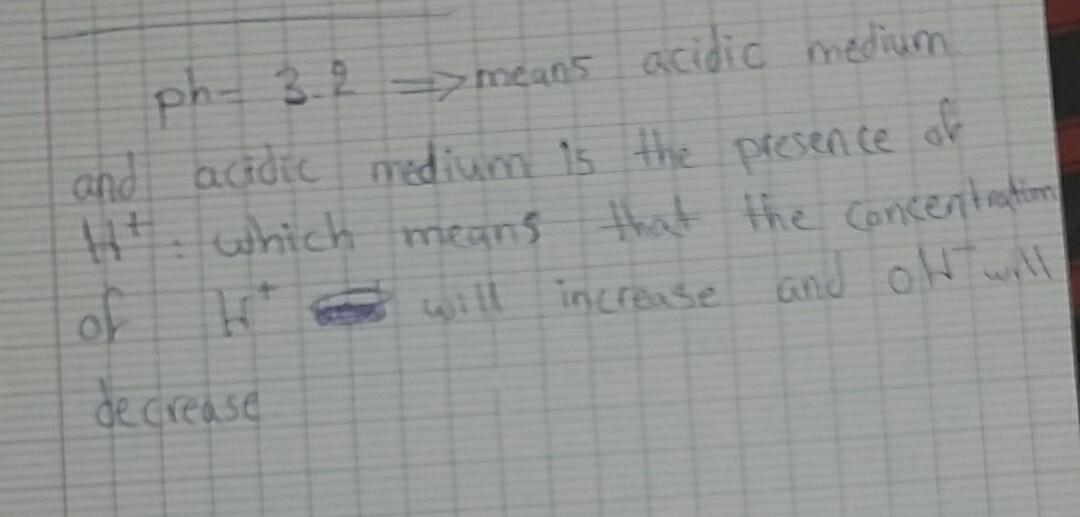 ph= 3.2 => means acidic medium
and acidic medium is the presence of
H+. which means that the concentration
of H+ will increase and OH- will
decrease